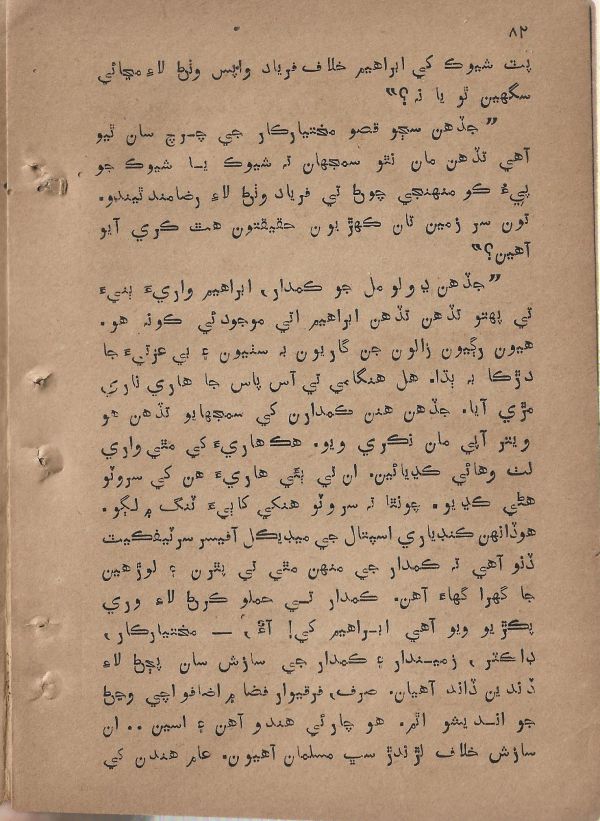 ۸۲
پٽ شيوڪ کي ابراهيم خلاف فرياد واپس وٺڻ لاءِ مڃائي
سگهين ٿو يا نه؟"
"جڏهن سڄو قصو مختيارڪار جي چـرچ سان ٿيو
آهي تڏهن مان نٿو سمجهان ته شيوڪ يـا شيوڪ جو
پيءُ ڪو منهنجي چوڻ تي فرياد وٺڻ لاءِ رضامند ٿيندو.
تون سر زمين تان ڪهڙيون حقيقتون هٿ ڪري آيو
آهين؟"
"جڏهن ڍولو مل جو ڪمدار، ابراهيم واريءَ ٻنيءَ
تي پهتو تڏهن تڏهن ابراهيم اتي موجود ئي ڪونه هو.
هيون رڳيون زالون جن گاريون به سنيون ۽ بي عزتيءَ جا
دڙڪا به ٻڌا. هل هنگامي تي آس پاس جا هاري ناري
مڙي آيا. جڏهن هنن ڪمدارن کي سمجهايو تڏهن هو
ويتر آپي مان نڪري ويو. هڪ هاريءَ کي مٿي واري
لٺ وهائي ڪڍيائين. ان تي ٻئي هاريءَ هن کي سروٽو
هڻي ڪڍيو. چونٿا ته سروٽو هنکي کاٻيءَ ٽنگ ۾ لڳو.
هوڏانهن ڪنڊياري اسپتال جي ميڊيڪل آفيسر سرٽيفڪيٽ
ڏنو آهي ته ڪمدار جي منهن مٿي تي پٿرن ۽ لوڙهين
جا گهرا گهاءَ آهن. ڪمدار تـي حملو ڪرڻ لاءِ وري
پڪڙيو ويو آهي ابـراهيم کي! آئُ، — مختيارڪار،
ڊاڪٽر، زميـندار ۽ ڪمدار جي سازش سان پڄڻ لاءِ
ڏندين ڏاند آهيان. صرف، فرقيوار فضا ۾ اضافو اچي وڃڻ
جو انـديشو اٿم. هو چارئي هندو آهن ۽ اسين .. ان
سازش خلاف لڙندڙ سڀ مسلمان آهيون. عام هندن کي